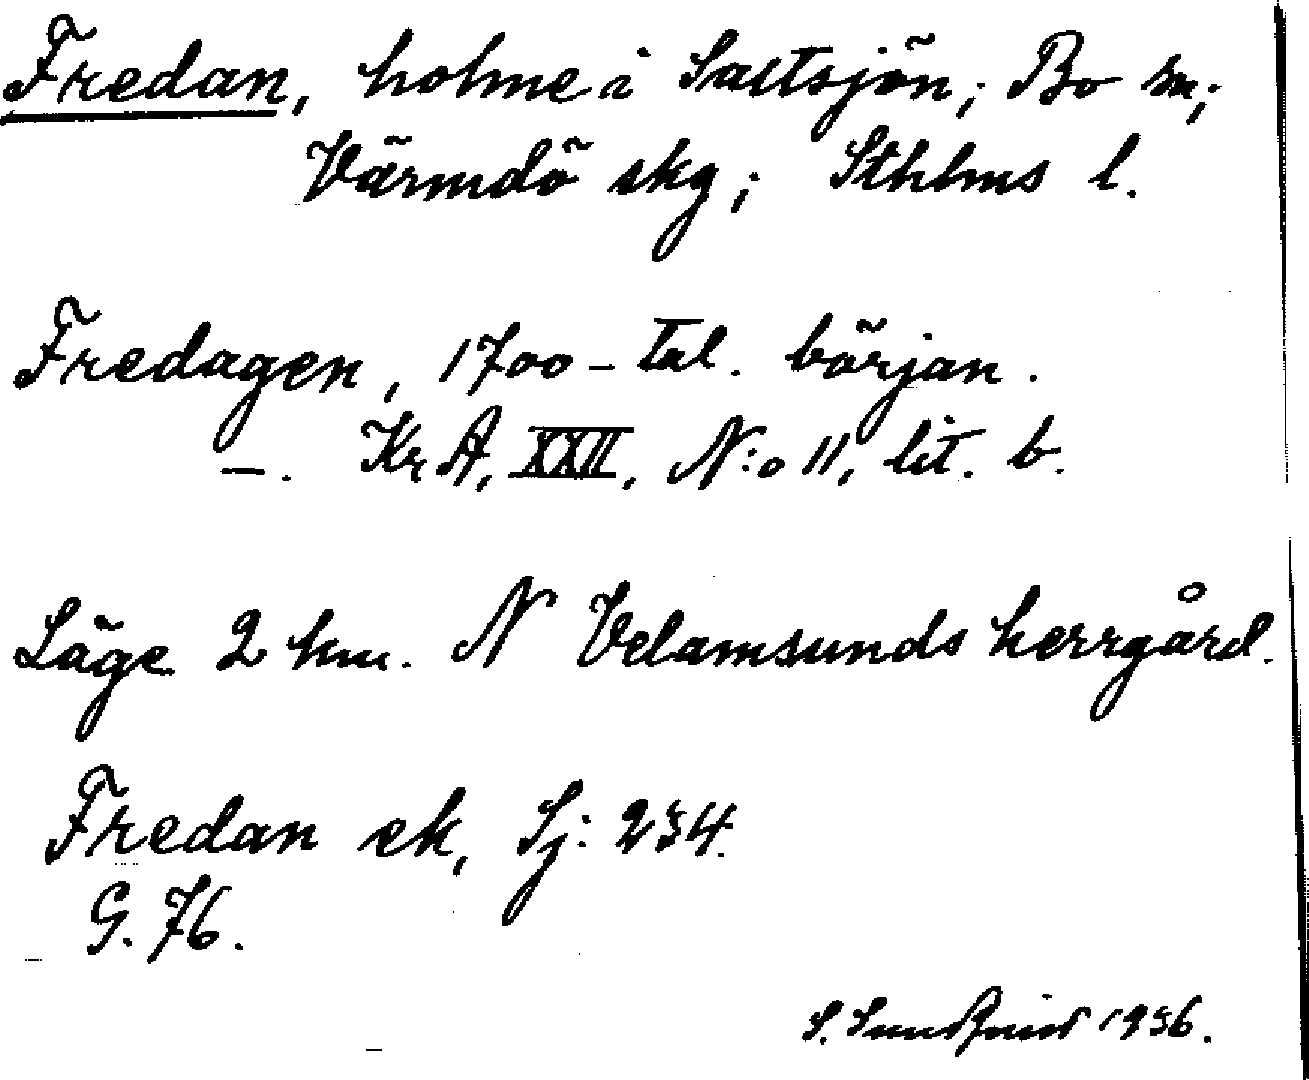 Fredan, holme i Saltsjön; Bo sn;
Värmdö skg; Sthlms l.
Fredagen, 1700-tal. början.
—. KrA, XXII, N:o 11, lit. b.
Läge 2 km. N Velamsunds herrgård.
Fredan ek, Sj: 234.
G. 76.
S. Sundquist 1936.